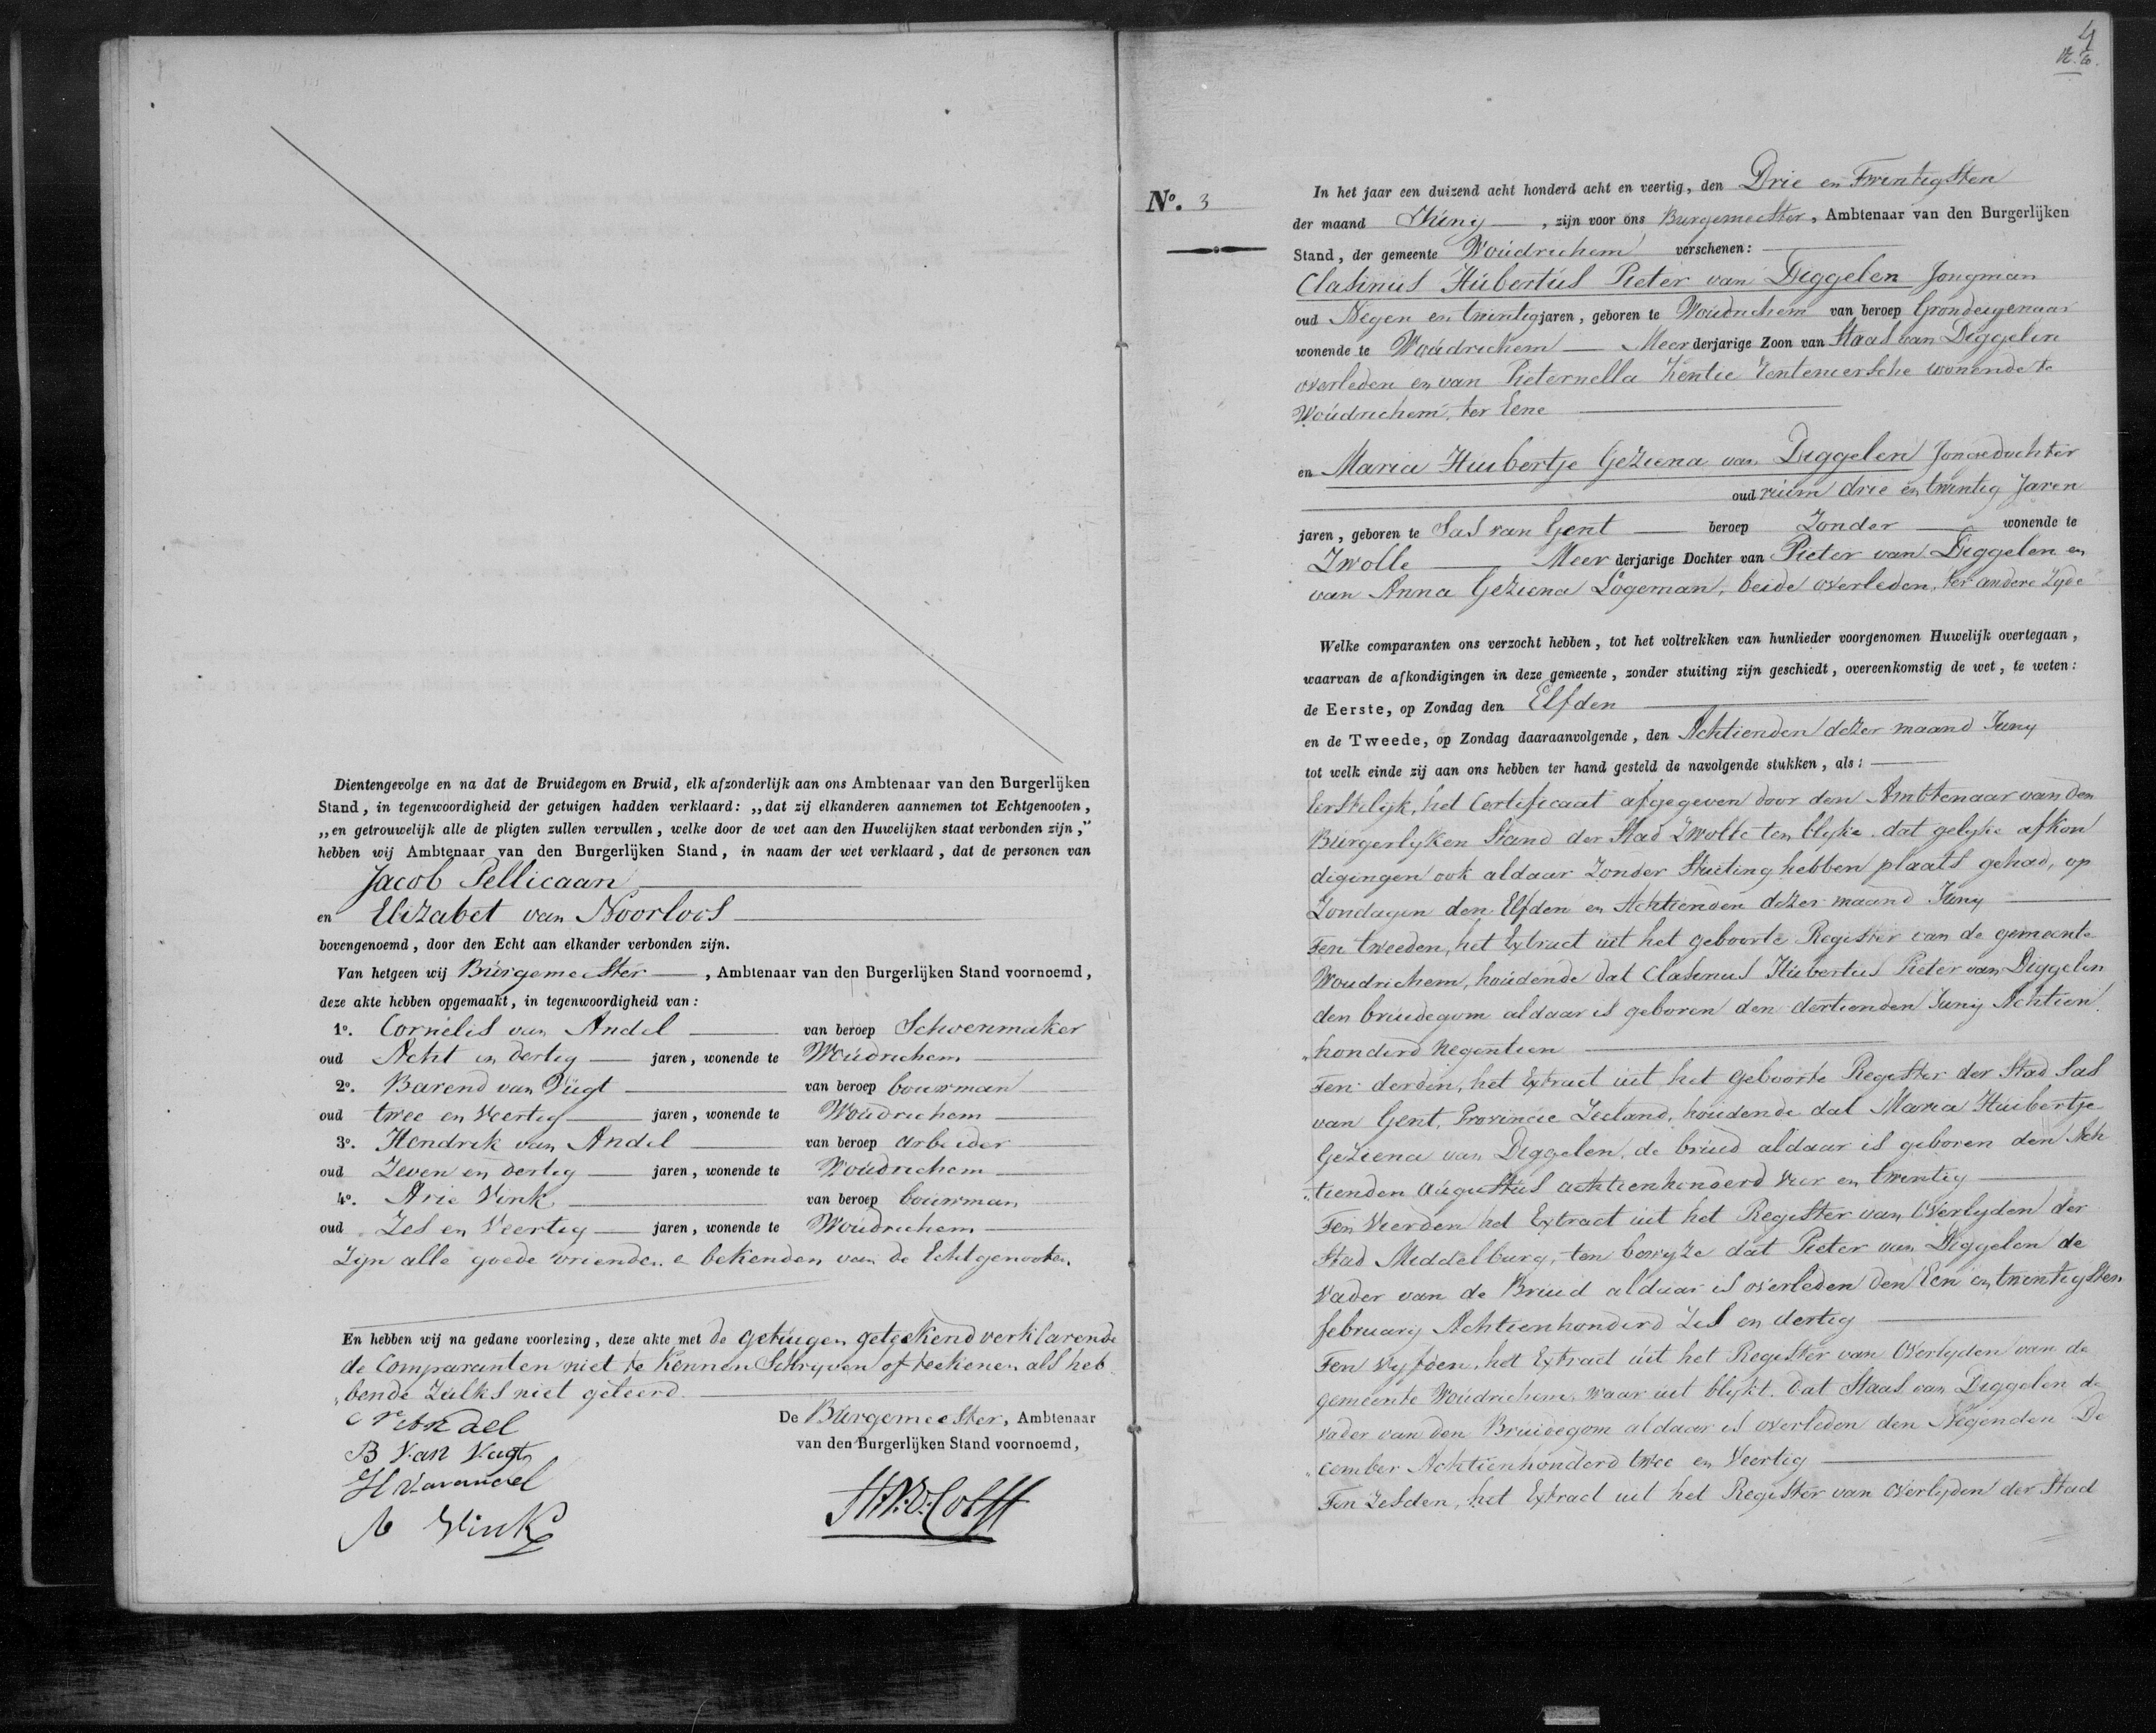 Dientengevolge en na dat de Bruidegom en Bruid, elk afzonderlijk aan ons Ambtenaar van den Burgerlijken
Stand, in tegenwoordigheid der getuigen hadden verklaard: „dat zij elkanderen aannemen tot Echtgenooten,
„en getrouwelijk alle de pligten zullen vervullen, welke door de wet aan den Huwelijken staat verbonden zijn,”
hebben wij Ambtenaar van den Burgerlijken Stand, in naam der wet verklaard, dat de personen van
Jacob Pellicaan
en Elizabet van Noorloos
bovengenoemd, door den Echt aan elkander verbonden zijn.
Van hetgeen wij Burgemeester, Ambtenaar van den Burgerlijken Stand voornoemd,
deze akte hebben opgemaakt, in tegenwoordigheid van:
1o. Cornelis van Andel van beroep Schoenmaker
oud Acht en dertig jaren, wonende te Woudrichem
2o. Barend van Vugt van beroep bouwman
oud twee en Veertig jaren, wonende te Woudrichem
3o. Hendrik van Andel van beroep arbeider
oud Zeven en dertig jaren, wonende te Woudrichem
4o. Arie Vink van beroep bouwman
oud Zes en Veertig jaren, wonende te Woudrichem
Zijn alle goede vrienden en bekenden van de Echtgenooten.
En hebben wij na gedane voorlezing, deze akte met de getuigen geteekend verklarende
de Comparanten niet te kennen Schryven of teekenen als heb
„bende zulks niet geleerd
De Burgemeester, Ambtenaar
van den Burgerlijken Stand voornoemd,
B Van Vugt
A Vink
4
No. 3
In het jaar een duizend acht honderd acht en veertig, den Drie en Twintigsten
der maand Juny, zijn voor ons Burgemeester, Ambtenaar van den Burgerlijken
Stand, der gemeente Woudrichem verschenen:
Clasinus Hubertus Pieter van Diggelen Jongman
oud Negen en twintig jaren, geboren te Woudrichem van beroep Grondeigenaar
wonende te Woudrichem Meerderjarige Zoon van Staas van Diggelen
overleden en van Pieternella wonende te
Woudrichem, ter Eene
en Maria Huibertje Geziena van Diggelen Jongedochter
oud ruim drie en twintig Jaren
jaren, geboren te Sas van Gent beroep Zonder wonende te
Zwolle Meerderjarige Dochter van Pieter van Diggelen en
van Anna Geziena Logeman, beide overleden, ter andere Zyde
Welke comparanten ons verzocht hebben, tot het voltrekken van hunlieder voorgenomen Huwelijk overtegaan,
waarvan de afkondigingen in deze gemeente, zonder stuiting zijn geschiedt, overeenkomstig de wet, te weten:
de Eerste, op Zondag den Elfden
en de Tweede, op Zondag daaraanvolgende, den Achtienden dezer maand Juny
tot welk einde zij aan ons hebben ter hand gesteld de navolgende stukken, als:
Eerstelijk, het Certificaat afgegeven door den Ambtenaar van den
Burgerlyken Stand der Stad Zwolle ten blyke dat gelyke afkon
digingen ook aldaar Zonder Stuiting hebben plaats gehad, op
Zondagen den Elfden en Achtienden dezer maand Juny
Ten tweeden, het Extract uit het geboorte Register van de gemeente
Woudrichem, houdende dat Clasinus Hubertus Pieter van Diggelen
den bruidegom aldaar is geboren den dertienden Juny Achtien
„honderd Negentien
Ten derden, het Extract uit het Geboorte Register der Stad Sas
van Gent, Provincie Zeeland, houdende dat Maria Huibertje
Geziena van Diggelen, de bruid aldaar is geboren den Ach
„tienden Augustus achttienhonderd vier en twintig
Ten Vierden het Extract uit het Register van Overlyden der
Stad Middelburg, ten bewyze dat Pieter van Diggelen de
Vader van de Bruid aldaar is overleden den Een en twintigsten
february Achtienhonderd Zes en dertig
Ten vyfden, het Extract uit het Register van Overlyden van de
gemeente Woudrichem, waar uit blykt dat Staas van Diggelen de
vader van den Bruidegom aldaar is overleden den Negenden De
„cember Achtienhonderd twee en Veertig
Ten Zesden, het Extract uit het Register van overlyden der Stad